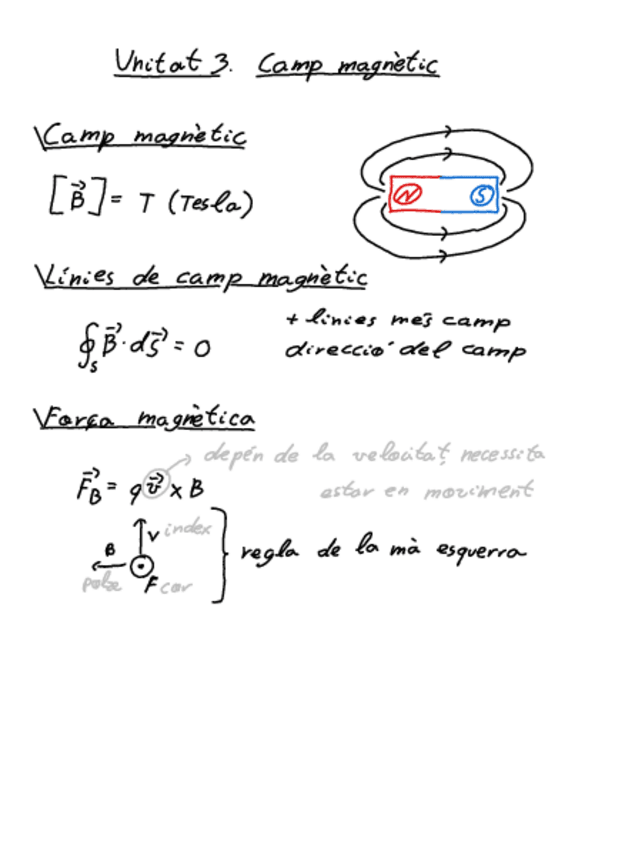 Unitat 3. Camp magnètic
Camp magnètic
[B⃗] = T (Tesla)
N S
Línies de camp magnètic
∮s B⃗·ds⃗ = 0
+ línies més camp
direcció del camp
Força magnètica
F⃗B = q v⃗ x B
depén de la velocitat, necessita
estar en moviment
V index
B
polze
F cor
regla de la mà esquerra